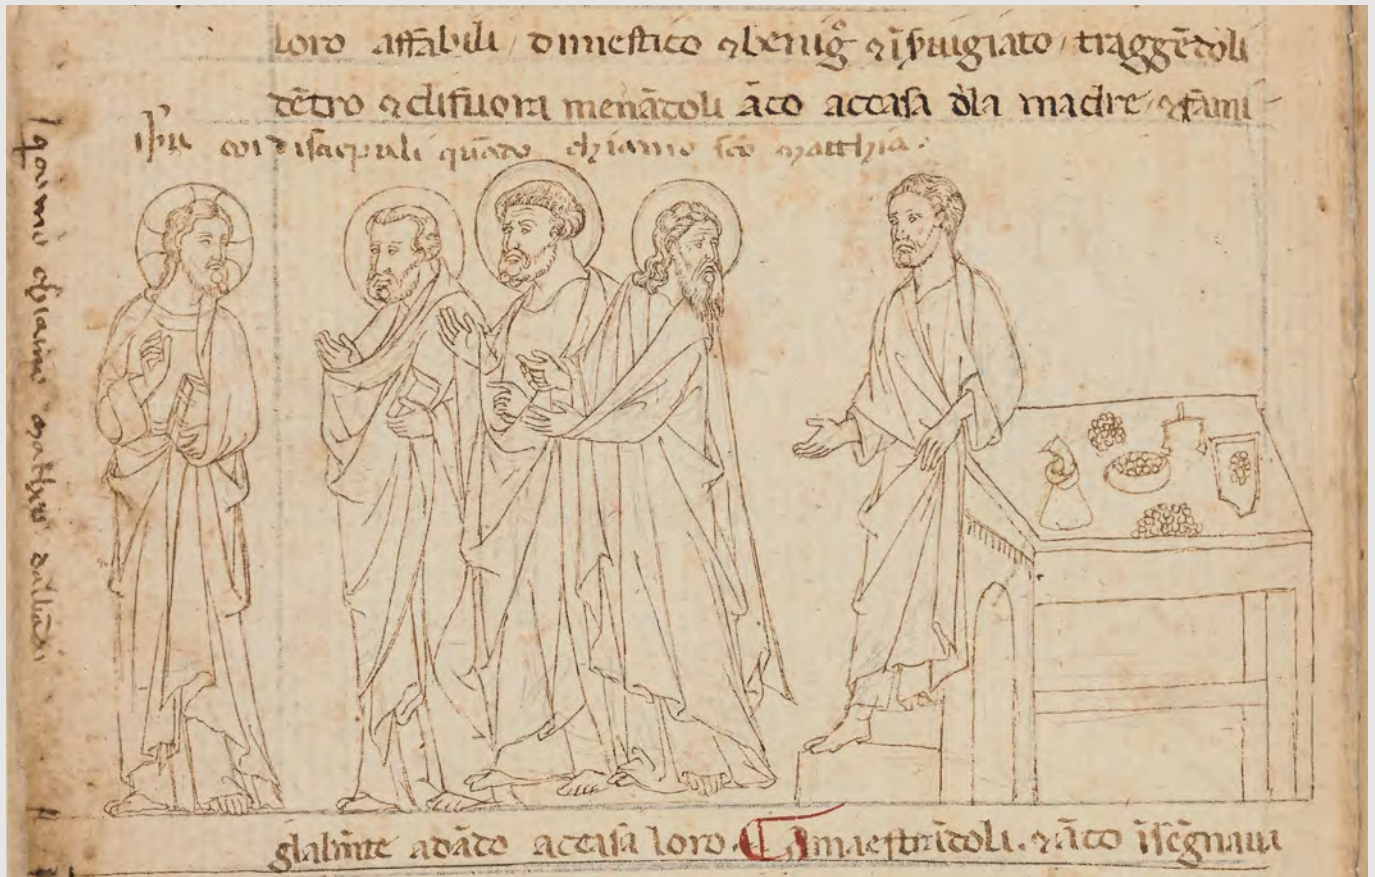 loro affabili / dimestico ⁊ benigº ⁊ īsvigiato / traggēdoli
dētro ⁊ di fuori menādoli āco accasa dla madre ⁊ fami-
coi discepuli quādo chiamo scō matthia.
quādo chiamo mattheo
glialmīte adādo accasa loro. ¶ Āmaestrādoli. ⁊ āco īsegnaua